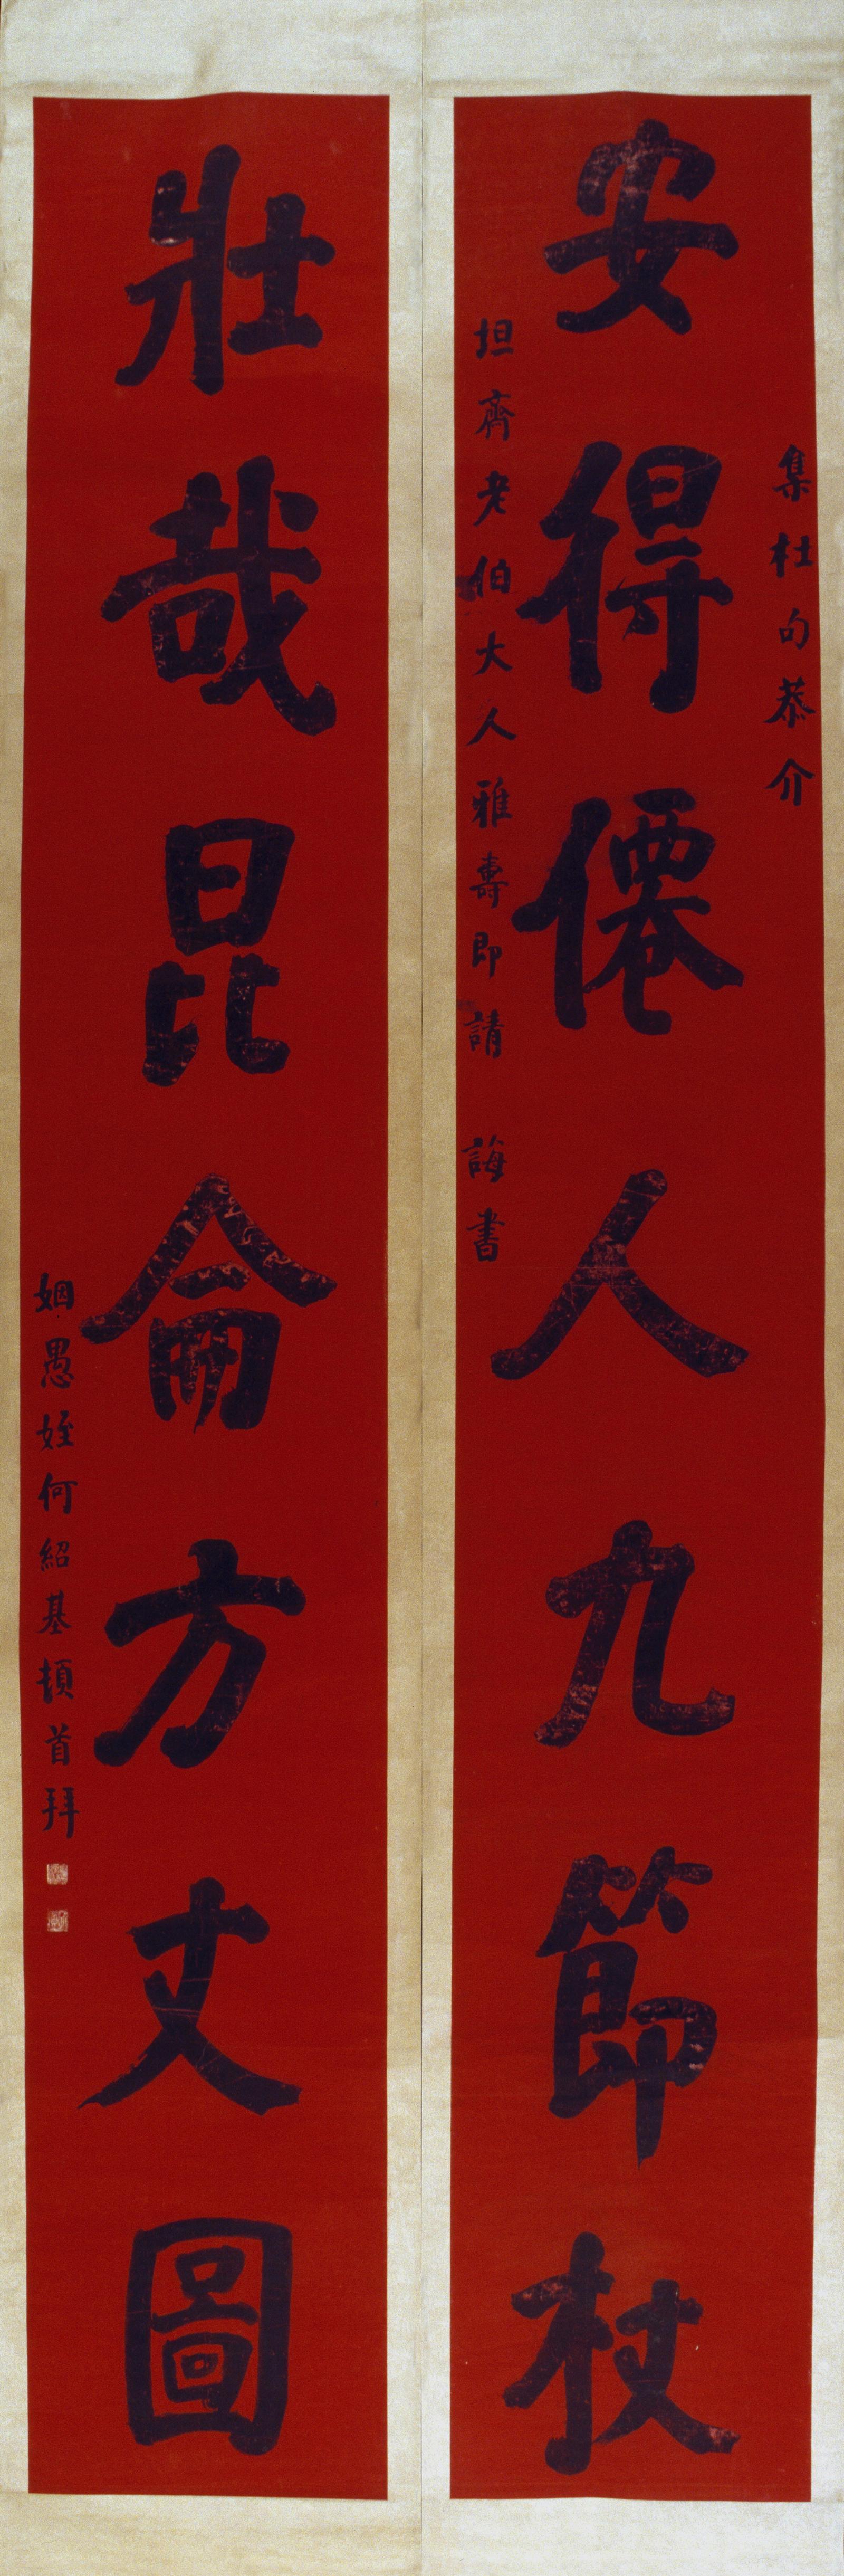 集杜句恭介
安得僊人九節杖
坦齋老伯大人雅壽即請 誨書
壯哉昆侖方丈圖
姻愚姪何紹基頓首拜